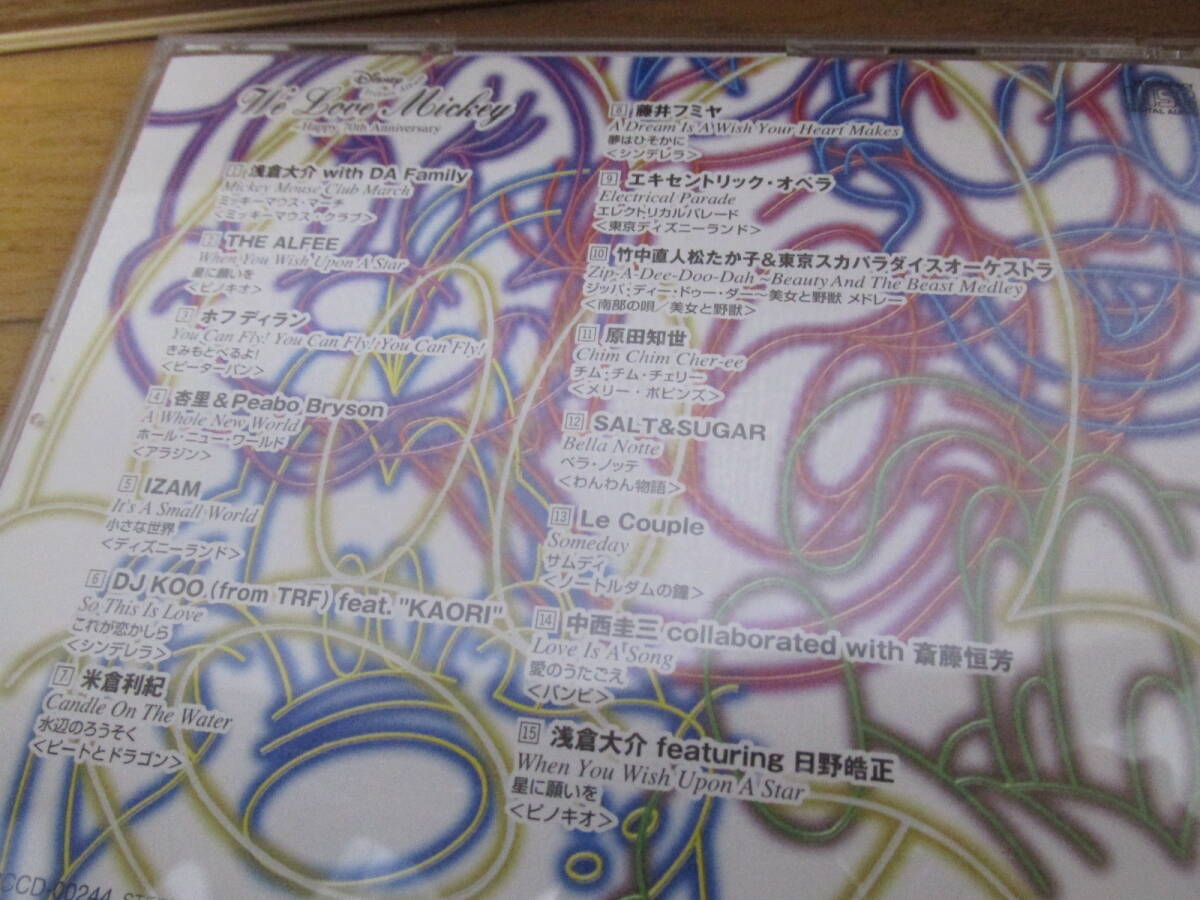 Disney
We Love Mickey
~Happy 70th Anniversary
1 浅倉大介 with DA Family
Mickey Mouse Club March
ミッキーマウス・マーチ
<ミッキーマウス・クラブ>
2 THE ALFEE
When You Wish Upon A Star
星に願いを
<ピノキオ>
3 ホフディラン
You Can Fly! You Can Fly! You Can Fly!
きみもとべるよ!
<ピーターパン>
4 杏里&Peabo Bryson
A Whole New World
ホール・ニュー・ワールド
<アラジン>
5 IZAM
It's A Small World
小さな世界
<ディズニーランド>
6 DJ KOO (from TRF) feat. "KAORI"
So This Is Love
これが恋かしら
<シンデレラ>
7 米倉利紀
Candle On The Water
水辺のろうそく
<ピートとドラゴン>
8 藤井フミヤ
A Dream Is A Wish Your Heart Makes
夢はひそかに
<シンデレラ>
9 エキセントリック・オペラ
Electrical Parade
エレクトリカルパレード
<東京ディズニーランド>
10 竹中直人松たか子&東京スカパラダイスオーケストラ
Zip-A-Dee-Doo-Dah ~Beauty And The Beast Medley
ジッパ・ディー・ドゥー・ダー~美女と野獣 メドレー
<南部の唄/美女と野獣>
11 原田知世
Chim Chim Cher-ee
チム・チム・チェリー
<メリー・ポピンズ>
12 SALT&SUGAR
Bella Notte
ベラ・ノッテ
<わんわん物語>
13 Le Couple
Someday
サムデイ
<ノートルダムの鐘>
14 中西圭三 collaborated with 斎藤恒芳
Love Is A Song
愛のうたごえ
<バンビ>
15 浅倉大介 featuring 日野皓正
When You Wish Upon A Star
星に願いを
<ピノキオ>
CCD-00244